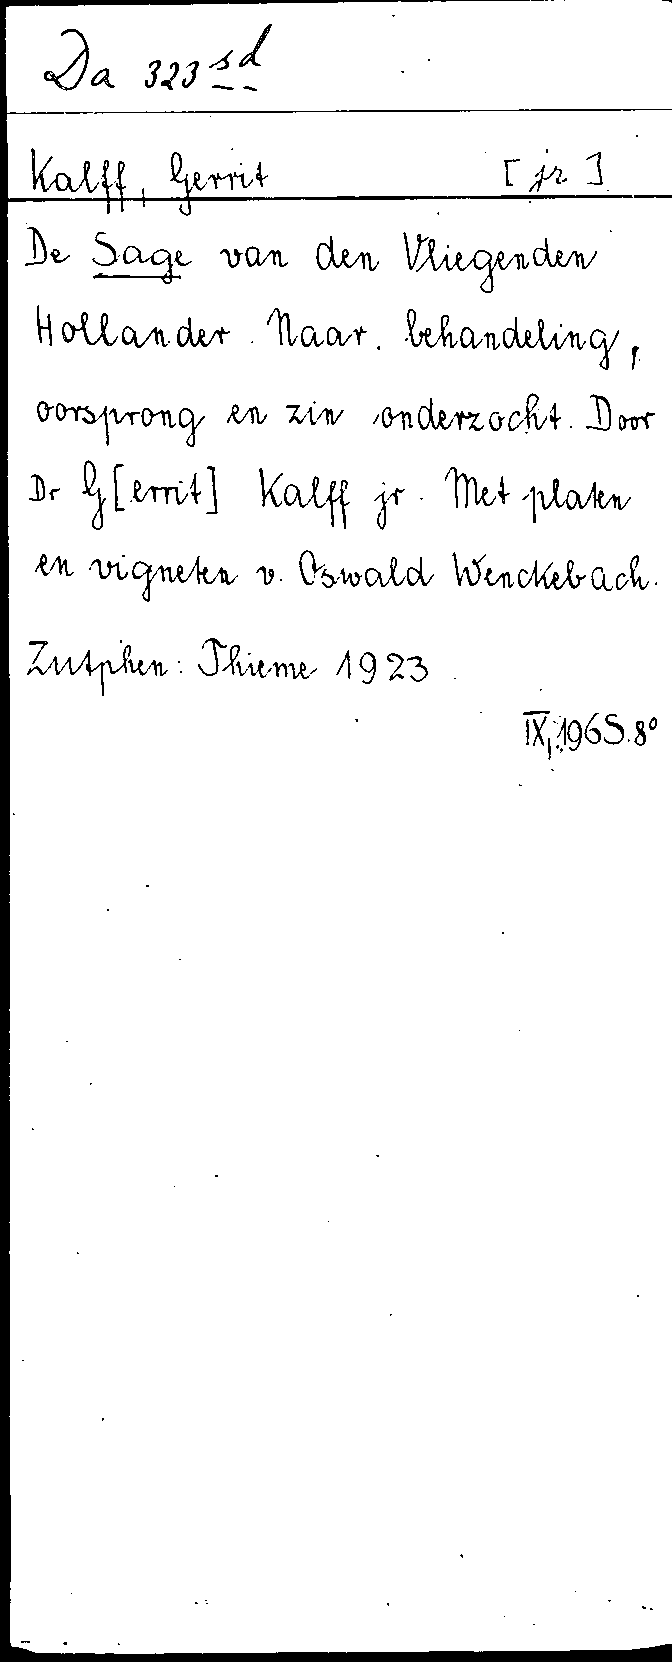 Da 323 sd
Kalff, Gerrit [jr.]
De Sage van den Vliegenden
Hollander. Naar behandeling,
oorsprong en zin onderzocht. Door
Dr G[errit] Kalff jr. Met platen
en vigneten v. Oswald Wenckebach.
Zutphen: Thieme 1923
IX, 196 S. 8°